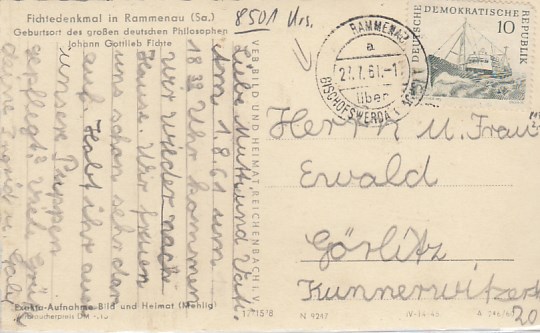 Fichtedenkmal in Rammenau (Sa.)
Geburtsort des großen deutschen Philosophen
Johann Gottlieb Fichte
8501 Urs.
Liebe Mutti und Vati.
Am 1.8.61 um
18 32 Uhr kommen
wir wieder nach
Hause. Wir freuen
uns schon sehr dar
auf. Habt ihr auch
unsere Puppen
gepflegt? Viele Grüße
deine Ingrid u. Gabi
VEB BILD UND HEIMAT REICHENBACH I. V.
RAMMENAU
a
27.7.61.-1
über
BISCHOFSWERDA
DEUTSCHE DEMOKRATISCHE REPUBLIK
10
Herrn u. Frau
Ewald
Görlitz
Kunnerwitzerst
20
Exakta-Aufnahme Bild und Heimat (Mehlig)
Verbraucherpreis DM
N 9247
IV-14-45